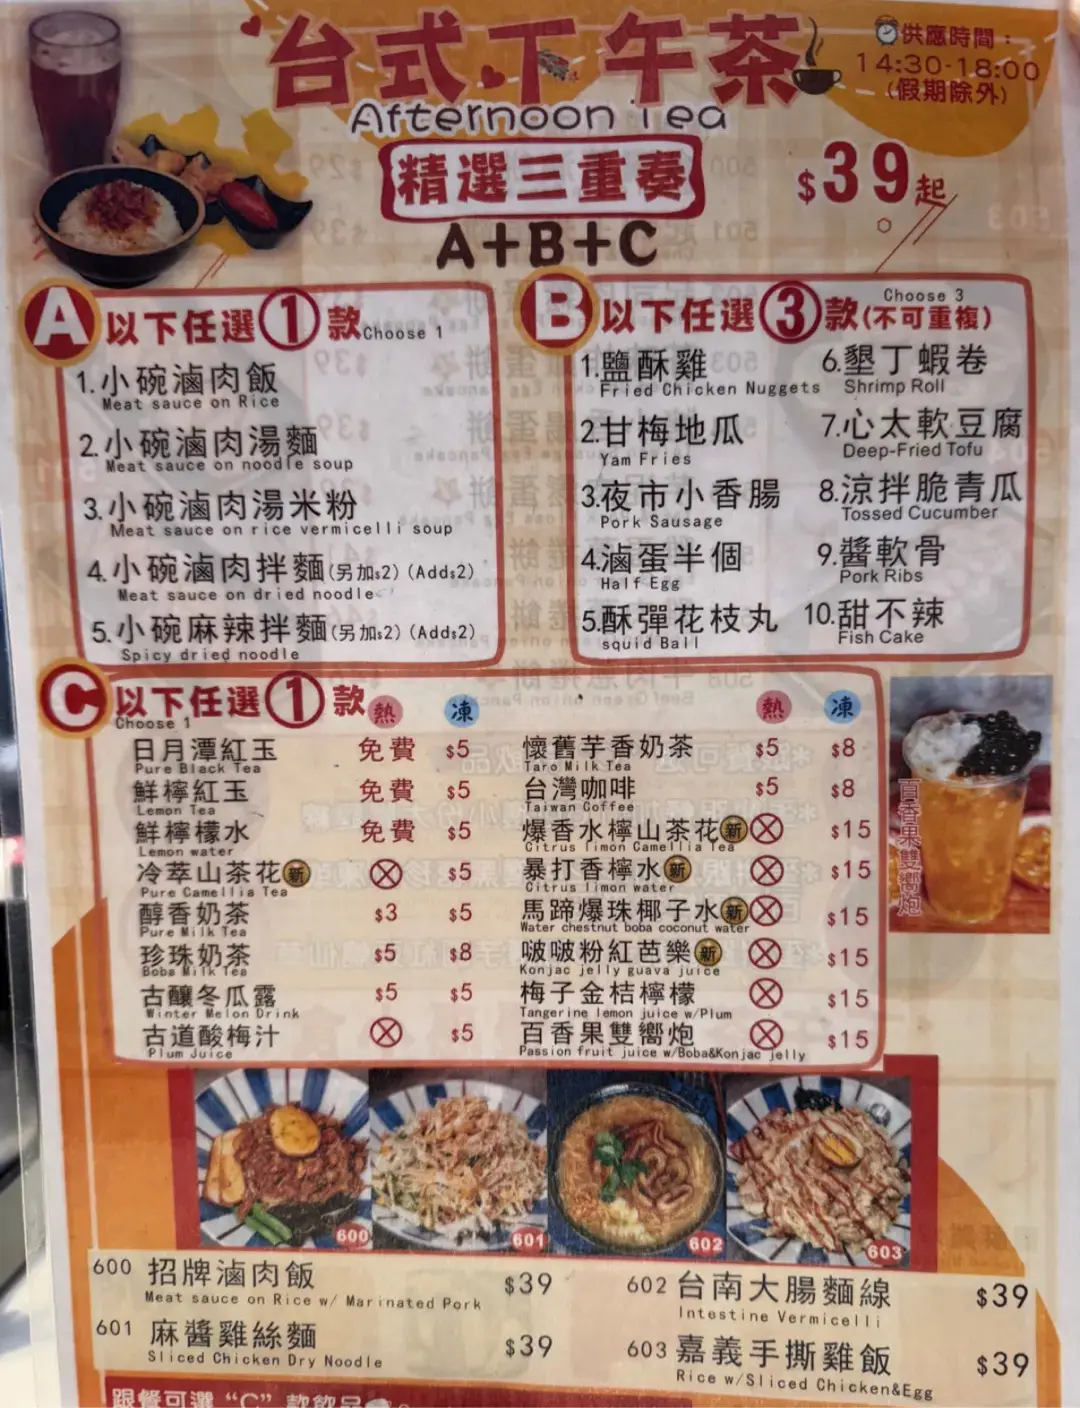 台式下午茶
Afternoon Tea
供應時間：
14:30-18:00
(假期除外)
精選三重奏
$39起
A+B+C
A 以下任選①款 Choose 1
1.小碗滷肉飯
Meat sauce on Rice
2.小碗滷肉湯麵
Meat sauce on noodle soup
3.小碗滷肉湯米粉
Meat sauce on rice vermicelli soup
4.小碗滷肉拌麵(另加$2) (Add$2)
Meat sauce on dried noodle
5.小碗麻辣拌麵(另加$2) (Add$2)
Spicy dried noodle
B 以下任選③款(不可重複)
Choose 3
1.鹽酥雞
Fried Chicken Nuggets
2.甘梅地瓜
Yam Fries
3.夜市小香腸
Pork Sausage
4.滷蛋半個
Half Egg
5.酥彈花枝丸
squid Ball
6.墾丁蝦卷
Shrimp Roll
7.心太軟豆腐
Deep-Fried Tofu
8.涼拌脆青瓜
Tossed Cucumber
9.醬軟骨
Pork Ribs
10.甜不辣
Fish Cake
C 以下任選①款 熱 凍
Choose 1
日月潭紅玉 免費 $5
Pure Black Tea
鮮檸紅玉 免費 $5
Lemon Tea
鮮檸檬水 免費 $5
Lemon water
冷萃山茶花 新 $5
Pure Camellia Tea
醇香奶茶 $3 $5
Pure Milk Tea
珍珠奶茶 $5 $8
Boba Milk Tea
古釀冬瓜露 $5 $5
Winter Melon Drink
古道酸梅汁 $5
Plum Juice
熱 凍
懷舊芋香奶茶 $5 $8
Taro Milk Tea
台灣咖啡 $5 $8
Taiwan Coffee
爆香水檸山茶花 新 $15
Citrus limon Camellia Tea
暴打香檸水 新 $15
Citrus limon water
馬蹄爆珠椰子水 新 $15
Water chestnut boba coconut water
啵啵粉紅芭樂 新 $15
Konjac jelly guava juice
梅子金桔檸檬 $15
Tangerine lemon juice w/Plum
百香果雙嚮炮 $15
Passion fruit juice w/Boba&Konjac jelly
百香果雙嚮炮
600
601
602
603
600 招牌滷肉飯 $39
Meat sauce on Rice w/ Marinated Pork
601 麻醬雞絲麵 $39
Sliced Chicken Dry Noodle
602 台南大腸麵線 $39
Intestine Vermicelli
603 嘉義手撕雞飯 $39
Rice w/Sliced Chicken&Egg
跟餐可選 “C” 款飲品